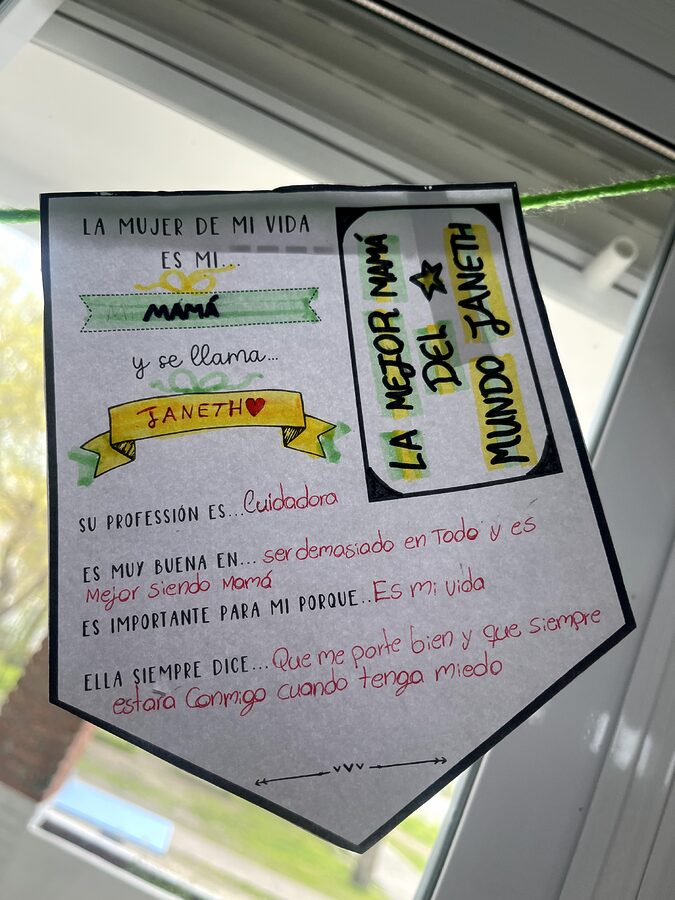 LA MUJER DE MI VIDA
ES MI...
MAMÁ
y se llama...
JANETH
SU PROFESIÓN ES...Cuidadora
ES MUY BUENA EN... ser demasiado en Todo y es
Mejor siendo Mamá
ES IMPORTANTE PARA MI PORQUE..Es mi vida
ELLA SIEMPRE DICE...Que me porte bien y que siempre
estará Conmigo cuando tenga miedo
LA MEJOR MAMÁ
DEL
MUNDO JANETH